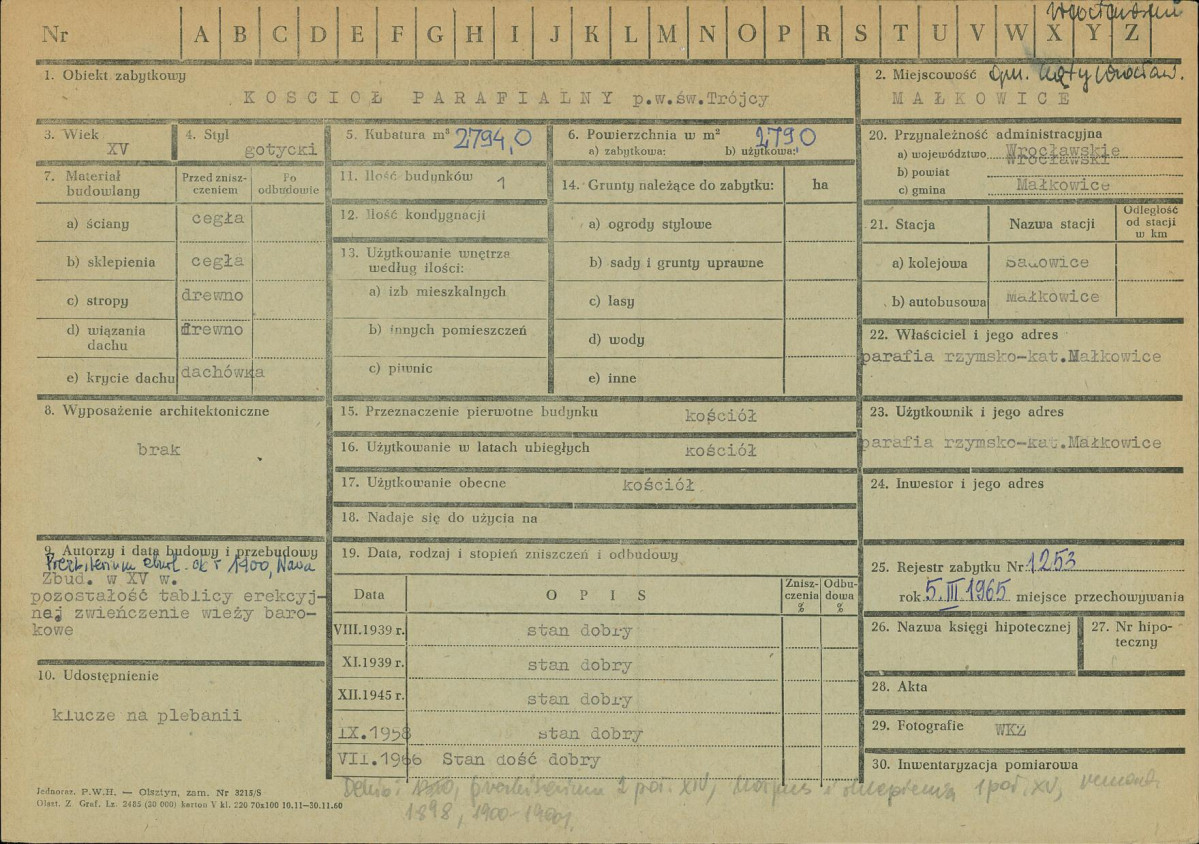 Nr A B C D E F G H I J K L M N O P R S T U V W X Y Z
1. Obiekt zabytkowy
KOSCIOŁ PARAFIALNY p.w.św.Trójcy
2. Miejscowość gm. Kąty Wrocław.
MAŁKOWICE
3. Wiek
XV
4. Styl
gotycki
5. Kubatura m³ 2794,0
6. Powierzchnia w m² 2790
a) zabytkowa: b) użytkowa:
7. Materiał budowlany
Przed zniszczeniem
Po odbudowie
a) ściany cegła
b) sklepienia cegła
c) stropy drewno
d) wiązania dachu drewno
e) krycie dachu dachówka
8. Wyposażenie architektoniczne
brak
9. Autorzy i data budowy i przebudowy
Prezbiterium ok r 1400, Nawa
Zbud. w XV w.
pozostałość tablicy erekcyj-
nej zwieńczenie wieży baro-
kowe
10. Udostępnienie
klucze na plebanii
11. Ilość budynków 1
12. Ilość kondygnacji
13. Użytkowanie wnętrza
według ilości:
a) izb mieszkalnych
b) innych pomieszczeń
c) piwnic
14. Grunty należące do zabytku: ha
a) ogrody stylowe
b) sady i grunty uprawne
c) lasy
d) wody
e) inne
15. Przeznaczenie pierwotne budynku kościół
16. Użytkowanie w latach ubiegłych kościół
17. Użytkowanie obecne kościół
18. Nadaje się do użycia na
19. Data, rodzaj i stopień zniszczeń i odbudowy
Data OPIS Zniszczenia % Odbudowa %
VIII.1939 r. stan dobry
XI.1939 r. stan dobry
XII.1945 r. stan dobry
IX.1958 stan dobry
VII.1966 Stan dość dobry
20. Przynależność administracyjna
a) województwo Wrocławskie
b) powiat Wrocławski
c) gmina Małkowice
21. Stacja Nazwa stacji Odległość od stacji w km
a) kolejowa Sadowice
b) autobusowa Małkowice
22. Właściciel i jego adres
parafia rzymsko-kat.Małkowice
23. Użytkownik i jego adres
parafia rzymsko-kat.Małkowice
24. Inwestor i jego adres
25. Rejestr zabytku Nr 1253
rok 5.III.1965 miejsce przechowywania
26. Nazwa księgi hipotecznej
27. Nr hipo-
teczny
28. Akta
29. Fotografie WKZ
30. Inwentaryzacja pomiarowa
prezbiterium 2 poł. XIV, korpus i sklepienia 1 poł. XV, remont
1898,
Jednoraz. P.W.H. — Olsztyn, zam. Nr 3215/S
Olszt. Z. Graf. Lz. 2485 (20 000) karton V kl. 220 70x100 10.11—30.11.60